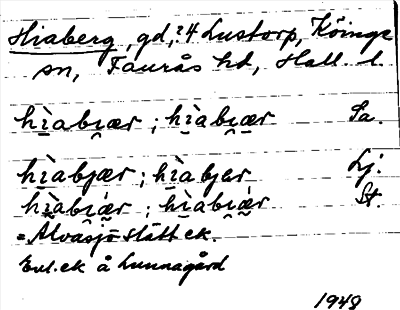 Hiaberg, gd, 24 Lustorp, Köinge
sn, Faurås hd, Hall. l.
hìabi̯ær ; hìabi̯ær Sa.
hìabjær ; hìabjær Lj.
hìabi̯ǽr ; hìabi̯ǽr St.
= Älvasjö slättek.
Enl. ek å Lunnagård
1948